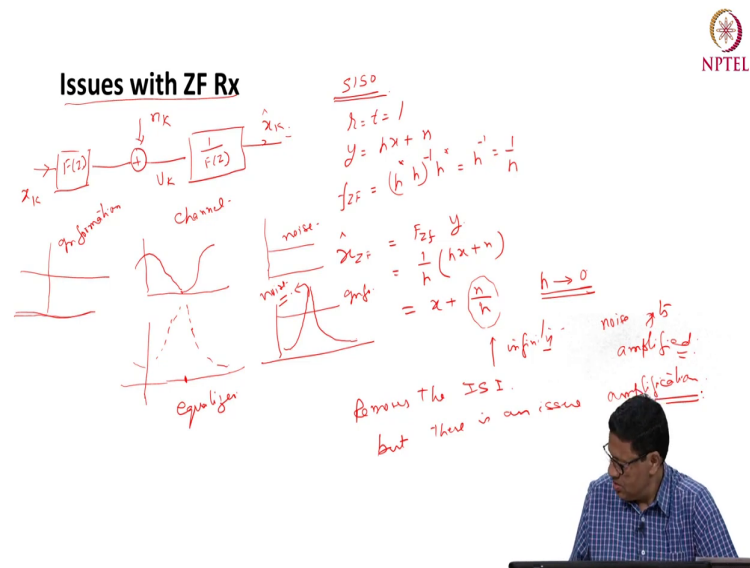 NPTEL
Issues with ZF Rx
n_K
x̂_K
x_K
F(Z)
+
v_K
1/F(Z)
information
channel.
noise.
noise.
info.
equalizer
SISO
r = t = 1
y = hx + n
f_ZF = (h* h)^-1 h* = h^-1 = 1/h
x̂_ZF = F_ZF y
= 1/h (hx + n)
= x + n/h
h → 0
↑ infinity
noise gets
amplified
Removes the ISI.
but there is an issue amplification.